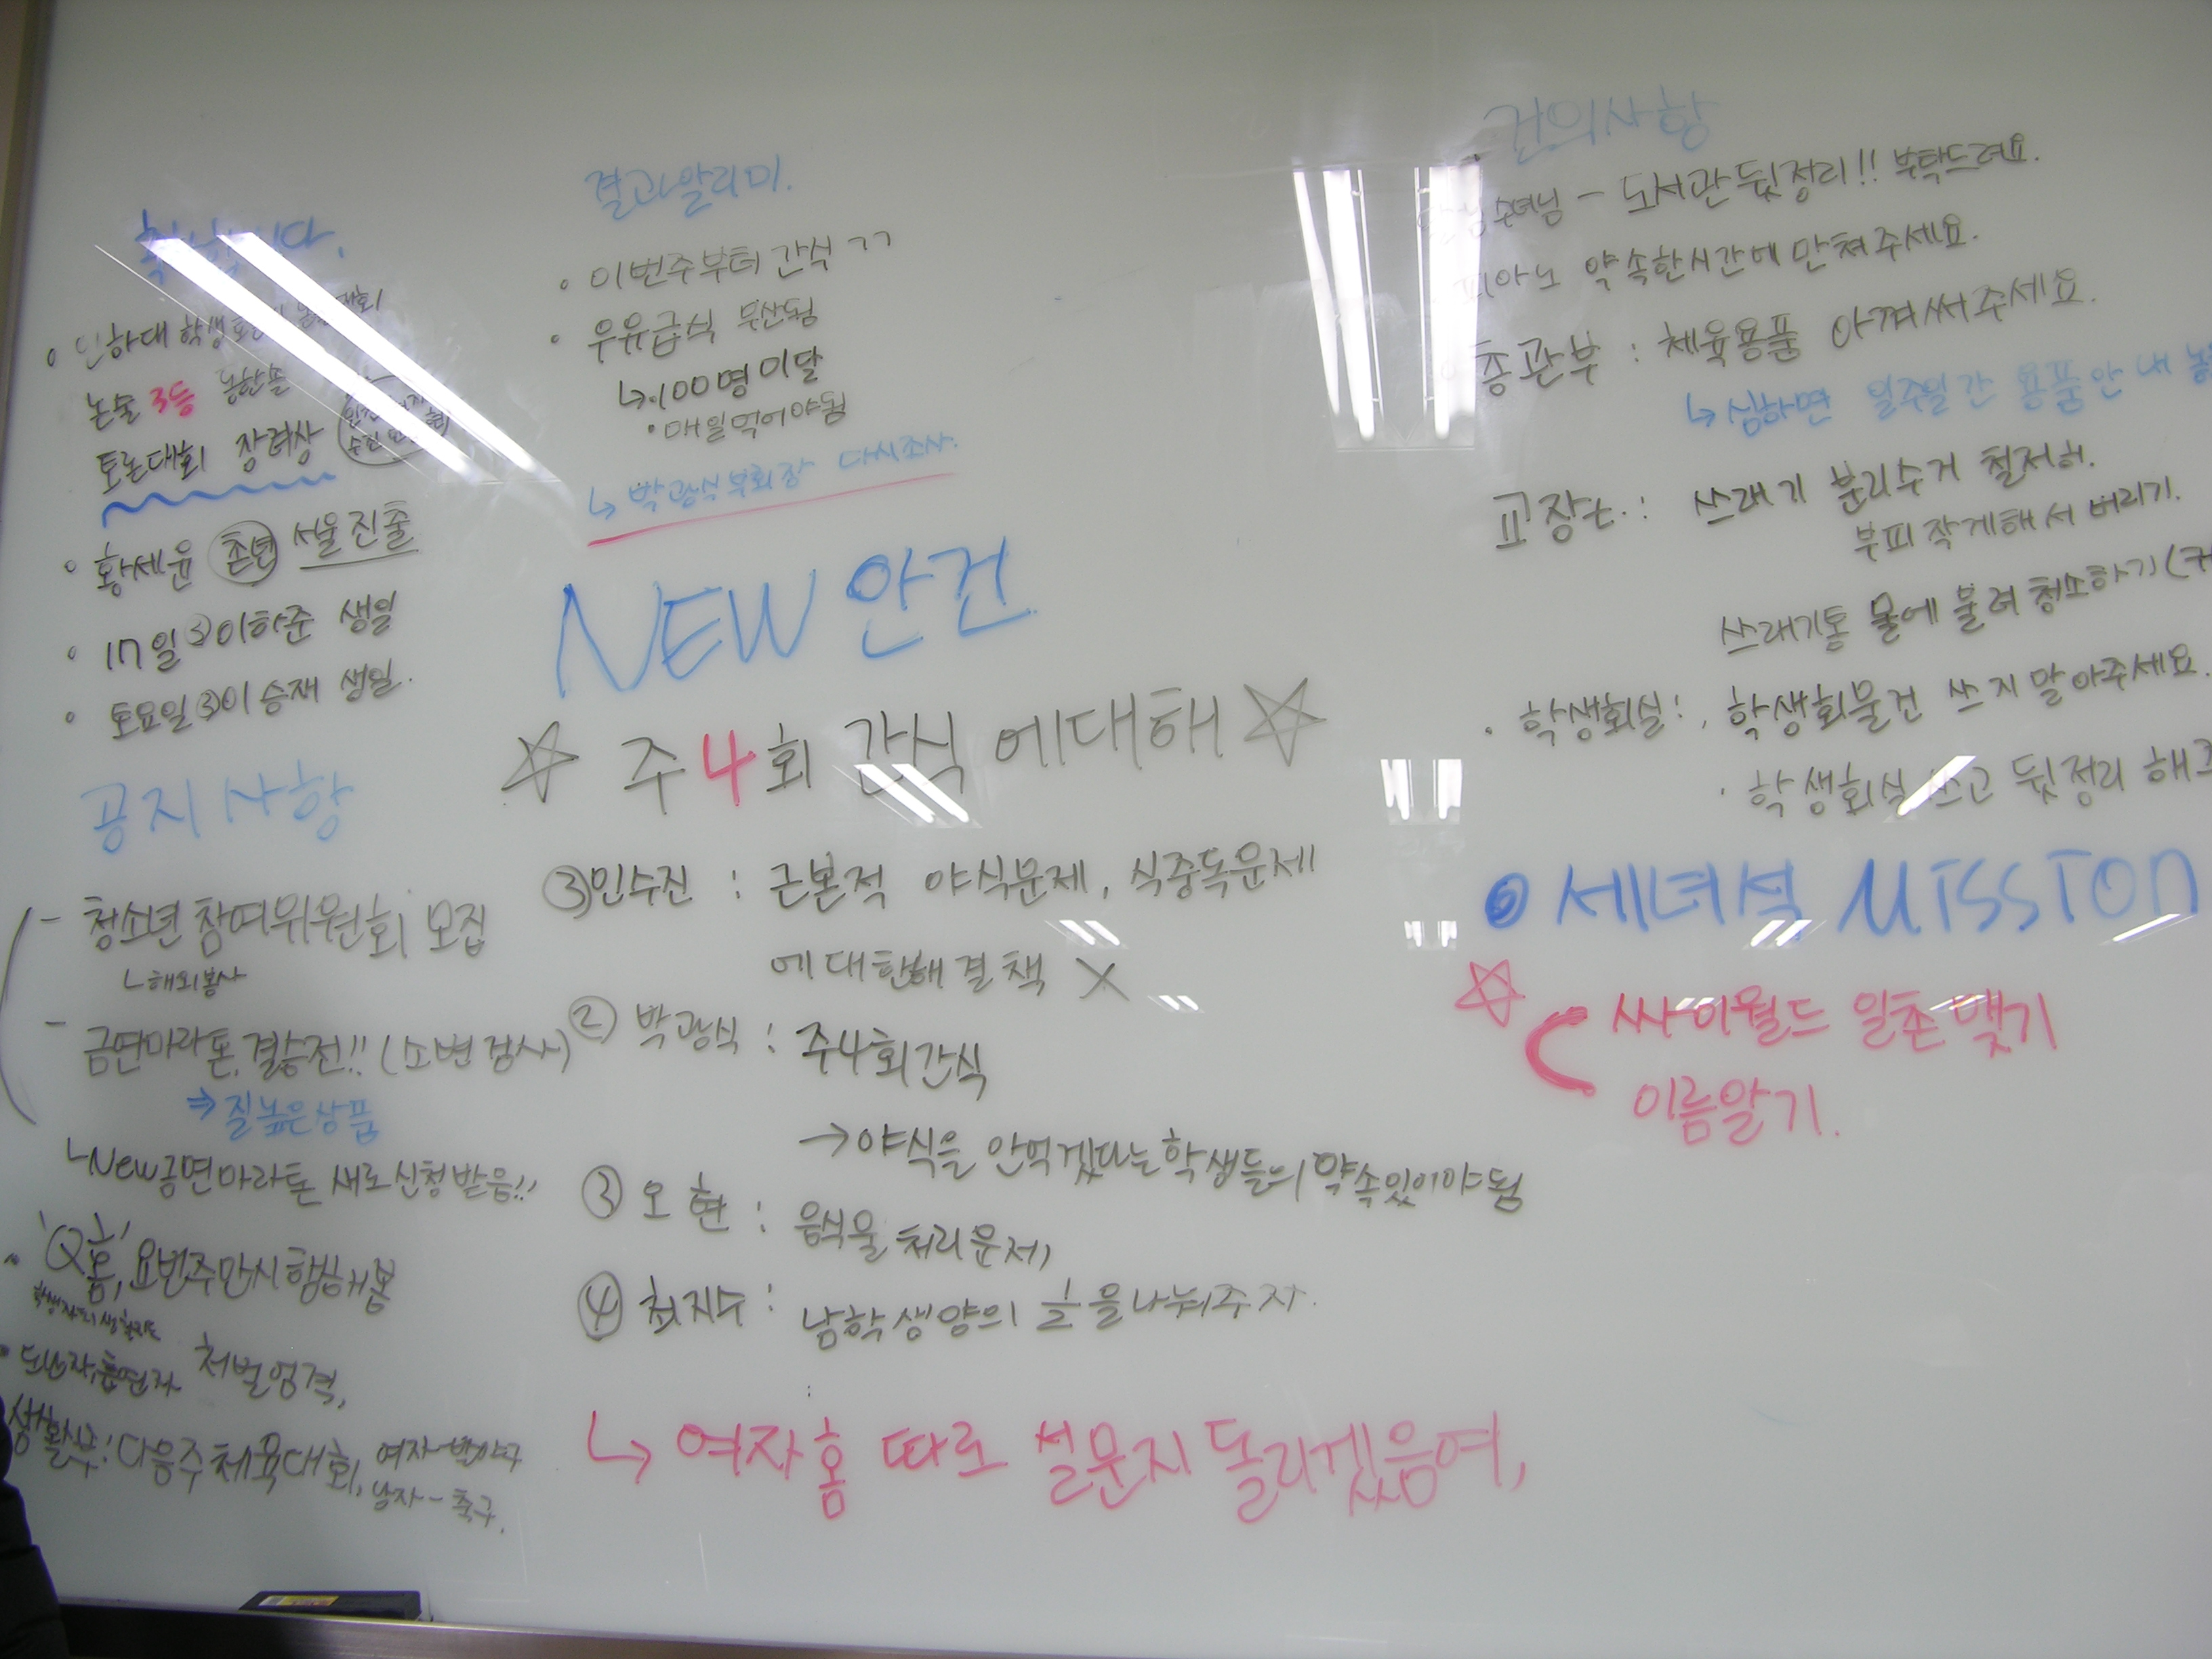 축하합니다.
인하대 학생토론 논술대회
논술 3등
토론대회 장려상
황세윤 서울진출
17일 ③이하준 생일
토요일 ③이승재 생일.
공지사항
- 청소년 참여위원회 모집
ㄴ해외봉사
- 금연마라톤, 결승전!! (소변검사)
⇒ 질높은상품
ㄴNew금연마라톤 새로신청받음!!
'Q홈', 요번주만시행해봄
도난자,흡연자 처벌엄격,
생활부: 다음주체육대회, 여자-발야구
남자-축구.
결과알리미.
이번주부터 간식 ㄱㄱ
우유급식 무산됨
↳.100명미달
•매일먹어야됨
↳박광식부회장 다시조사.
NEW 안건
☆ 주4회 간식에대해 ☆
③민수진 : 근본적 야식문제, 식중독문제
에대한해결책 X
② 박광식 : 주4회간식
→야식을 안먹겠다는학생들의 약속있어야됨
③ 오현 : 음식물처리문제,
④ 최지수 : 남학생양의 ½을나눠주자.
↳ 여자홈 따로 설문지돌리겠음여,
건의사항
수녀님 - 도서관뒷정리!! 부탁드려요.
피아노 약속한시간에만쳐주세요.
총관부 : 체육용품 아껴써주세요.
↳심하면 일주일간 용품안내
교장t. : 쓰레기 분리수거 철저히.
부피작게해서 버리기.
쓰래기통 물에불려청소하기
· 학생회실 : , 학생회물건 쓰지말아주세요.
· 학생회실쓰고 뒷정리
세녀석 MISSION
☆ 싸이월드 일촌맺기
이름알기.